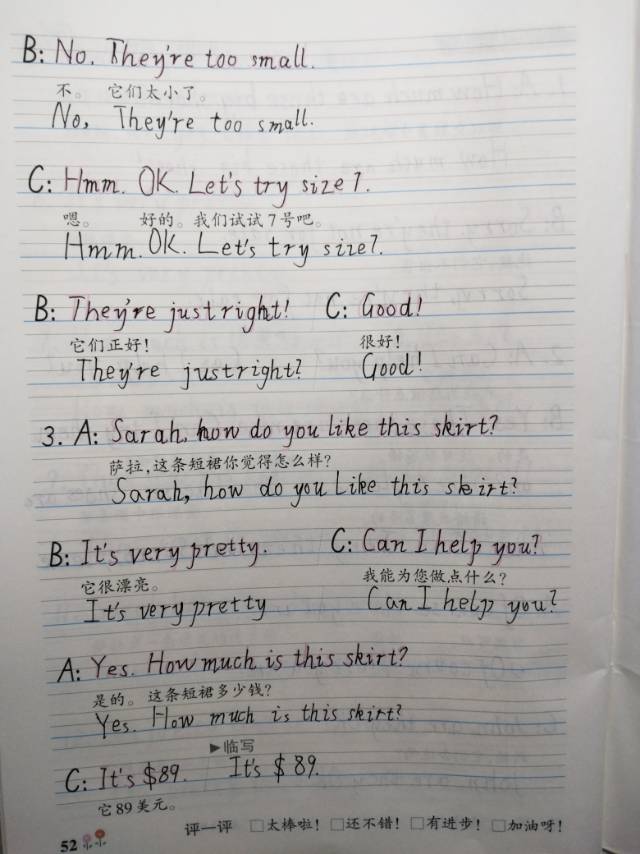 B: No. They're too small.
不。 它们太小了。
No, They're too small.
C: Hmm. OK. Let's try size 7.
嗯。 好的。我们试试7号吧。
Hmm. OK. Let's try size 7.
B: They're just right! C: Good!
它们正好! 很好!
They're just right? Good!
3. A: Sarah, how do you like this skirt?
萨拉,这条短裙你觉得怎么样?
Sarah, how do you Like this skirt?
B: It's very pretty. C: Can I help you?
它很漂亮。 我能为您做点什么?
It's very pretty Can I help you?
A: Yes. How much is this skirt?
是的。 这条短裙多少钱?
Yes. How much is this skirt?
▶临写
C: It's $89. It's $89.
它89美元。
评一评 □太棒啦! □还不错! □有进步! □加油呀!
52